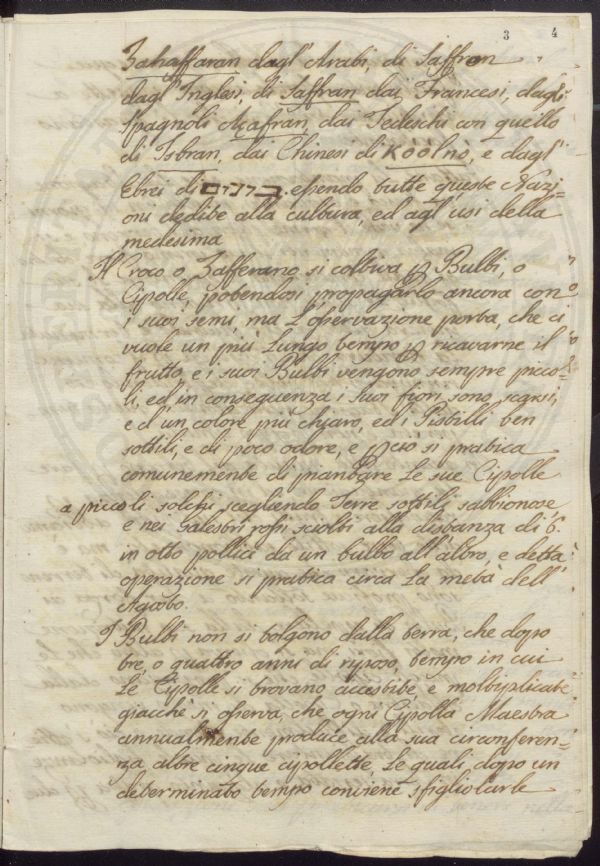 3 4
Zahaffaran dagl' Arabi, di Saffron
dagl' Inglesi, di Saffran dai Francesi, dagli
Spagnoli Azafran, dai Tedeschi con quello
di Isbran, dai Chinesi di Koolnò, e dagl'
Ebrei di essendo tutte queste Nazi-
oni dedite alla cultura, ed agl' usi della
medesima
Il Croco o Zafferano si coltiva p Bulbi, o
Cipolle, potendosi propagarlo ancora con
i suoi semi, ma l'osservazione porta, che ci
vuole un più lungo tempo p ricavarne il
frutto, e i suoi Bulbi vengono sempre picco-
li, ed in conseguenza i suoi fiori sono scarsi,
e d'un colore più chiaro, ed i Pistilli ben
sottili, e di poco odore, e p ciò si pratica
comunemente di piantare le sue Cipolle
a piccoli solchi scegliendo Terre sottili sabbionose,
e nei Galestri rossi sciolti alla distanza di 6.
in otto pollici da un bulbo all'altro, e detta
operazione si pratica circa la metà dell'
Agosto.
I Bulbi non si tolgono dalla terra, che dopo
tre, o quattro anni di riposo, tempo in cui
le Cipolle si trovano accestite, e moltiplicate
giacchè si osserva, che ogni Cipolla Maestra
annualmente produce alla sua circonferen-
za altre cinque cipollette le quali dopo un
determinato tempo conviene sfigliolarle